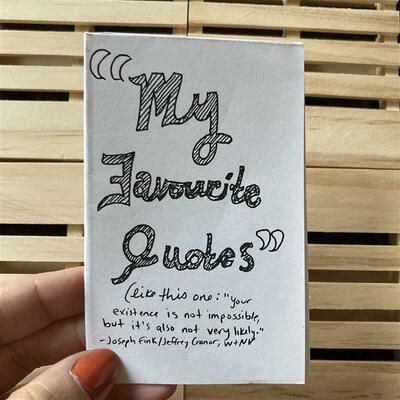 "My
Favourite
Quotes"
(like this one: "your
existence is not impossible,
but it's also not very likely."
-Joseph Fink/Jeffrey Cranor, WTNV